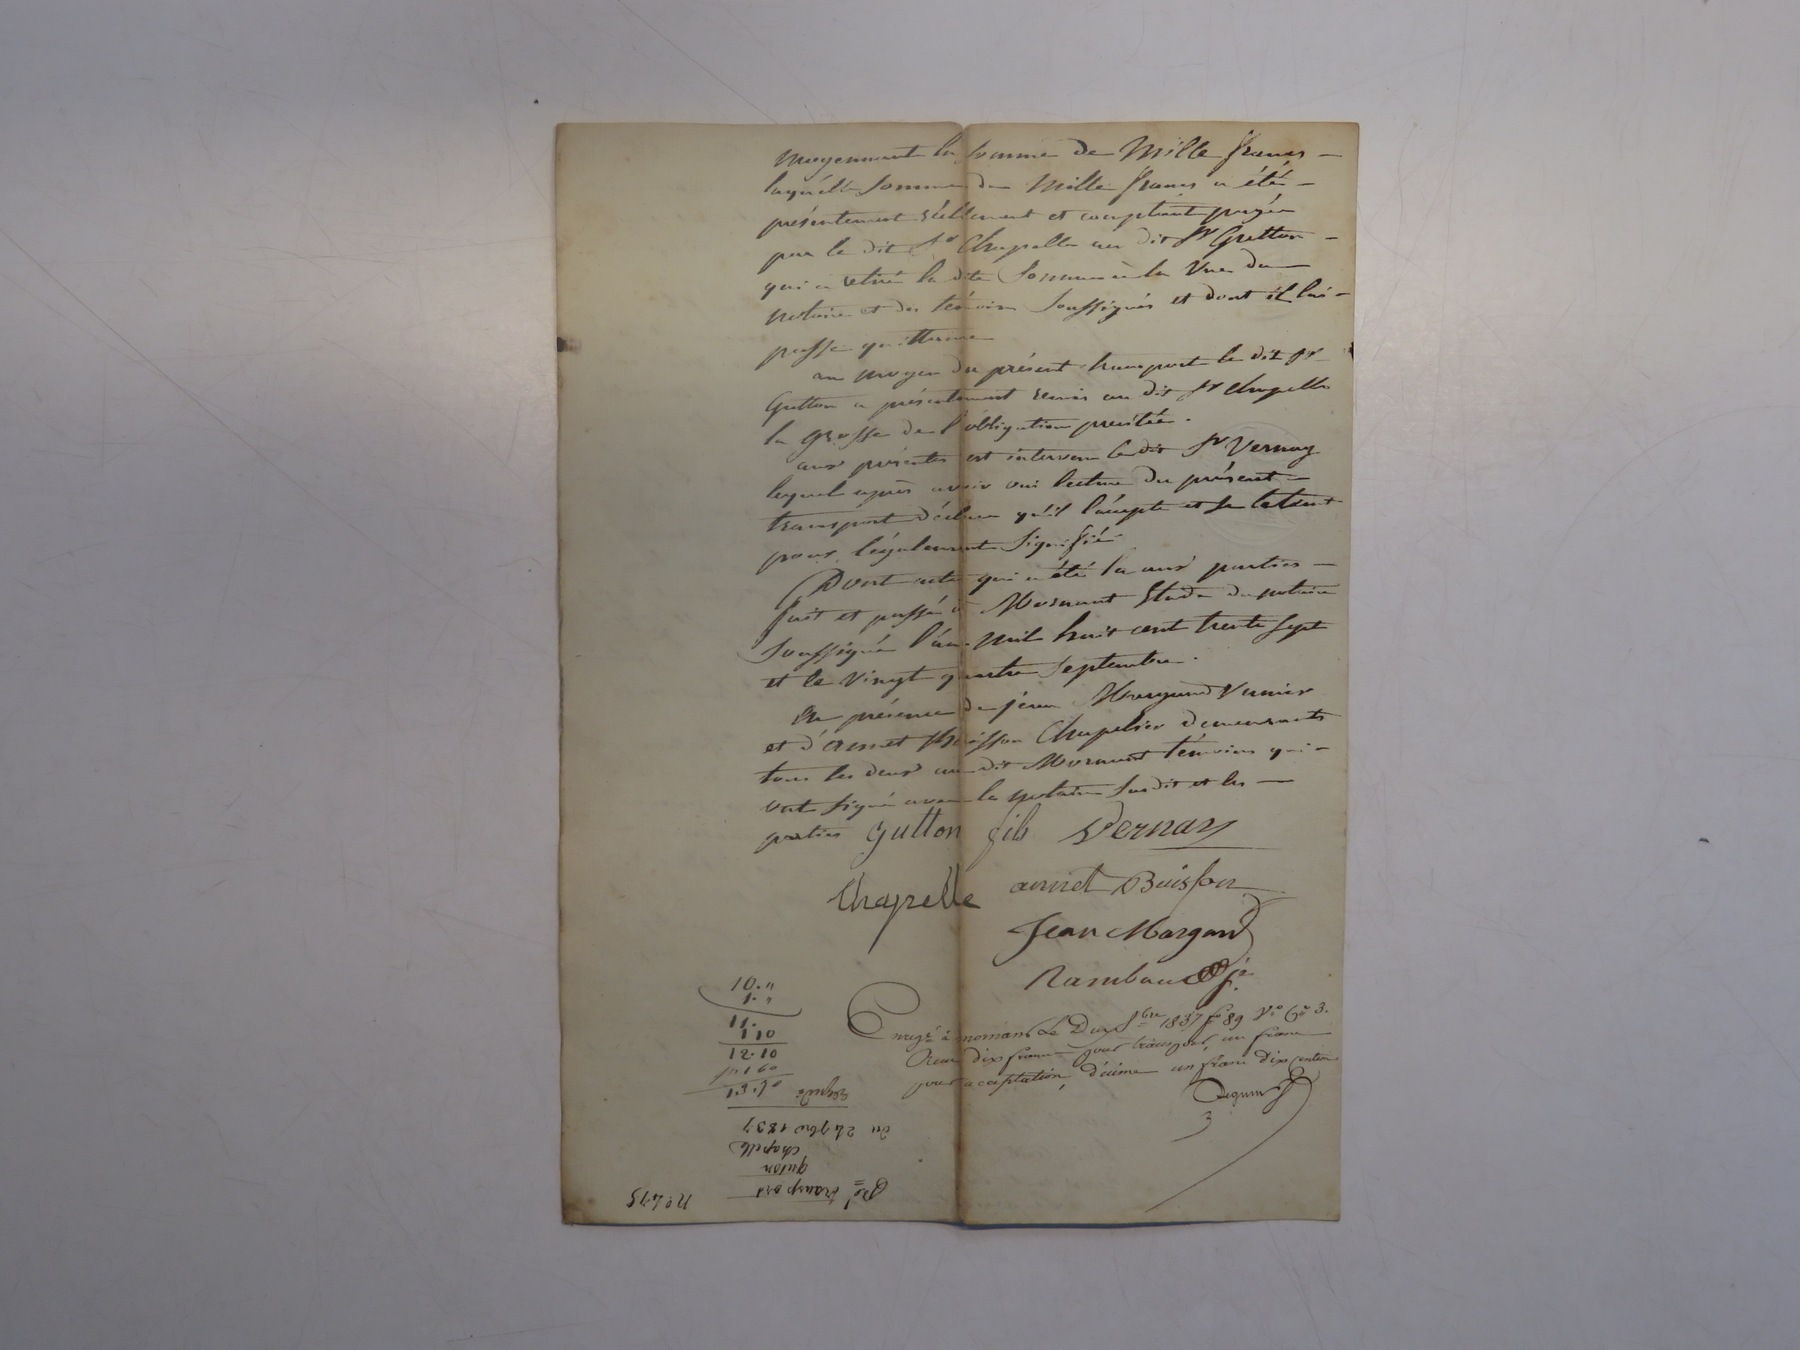 moyennant la somme de Mille francs —
laquelle somme de Mille francs a été —
présentement réellement et comptant payée
par le dit Sr Chapelle au dit Sr Gutton —
qui a retiré la dite somme à la vue du
notaire et des témoins soussignés et dont il lui —
passe quittance
au moyen du présent transport le dit Sr
Gutton a présentement remis au dit Sr Chapelle
la grosse de l'obligation précitée.
aux présentes est intervenu le dit Sr Vernay
lequel après avoir oui lecture du présent —
transport déclare qu'il l'accepte et se le tient
pour légalement signifié
Dont acte qui a été lu aux parties —
fait et passé à Mornant Etude du notaire
soussigné l'an mil huit cent trente sept
et le vingt quatre septembre.
En présence de jean Margand
et d'annet Buisson Chapelier demeurants
tous les deux au dit Mornant témoins qui —
ont signé avec le notaire susdit et les —
parties Gutton fils Vernay
Chapelle annet Buisson
Jean Margand
Rambaud
10. "
1. "
11.
1 10
12.10
1.60
13.70
Enregé à mornant Le Deux 8bre 1837 fo 89 Vo Co 3.
Reçu dix francs pour transport, un franc
pour acceptation, décime un franc dix centimes
3
No 475
transport
guton
chapelle
du 24 7bre 1837